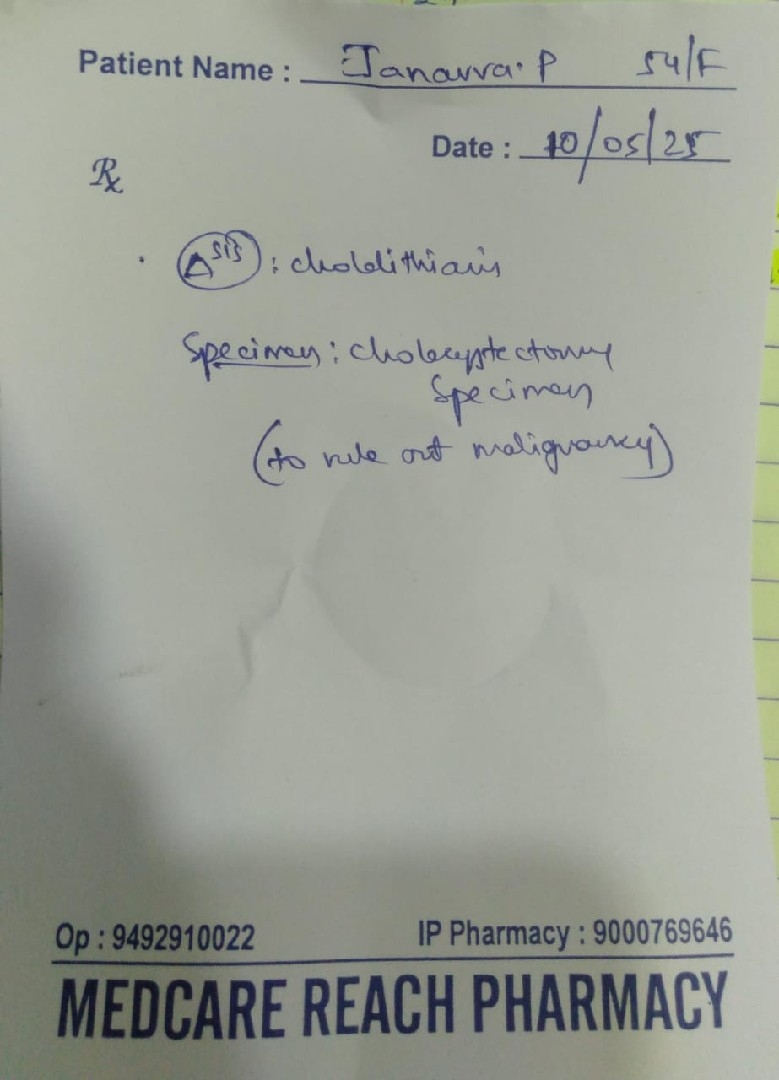 Patient Name : Janavva. P 54/F
Date : 10/05/25
Rx
. Δsis : cholelithiasis
Specimen : cholecystectomy
Specimen
(to rule out malignancy)
Op : 9492910022 IP Pharmacy : 9000769646
MEDCARE REACH PHARMACY